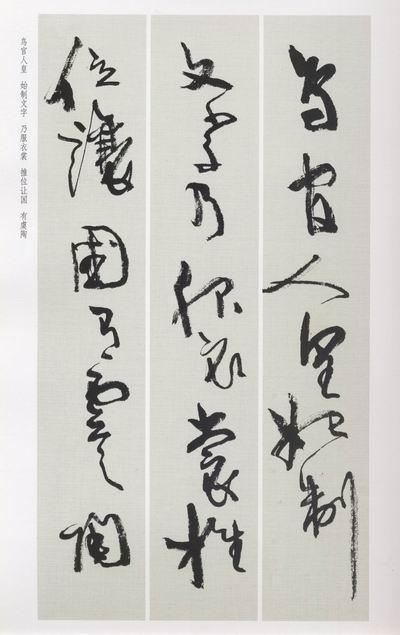 鸟官人皇始制
文字乃服衣裳推
位让国有虞陶
鸟官人皇 始制文字 乃服衣裳 推位让国 有虞陶